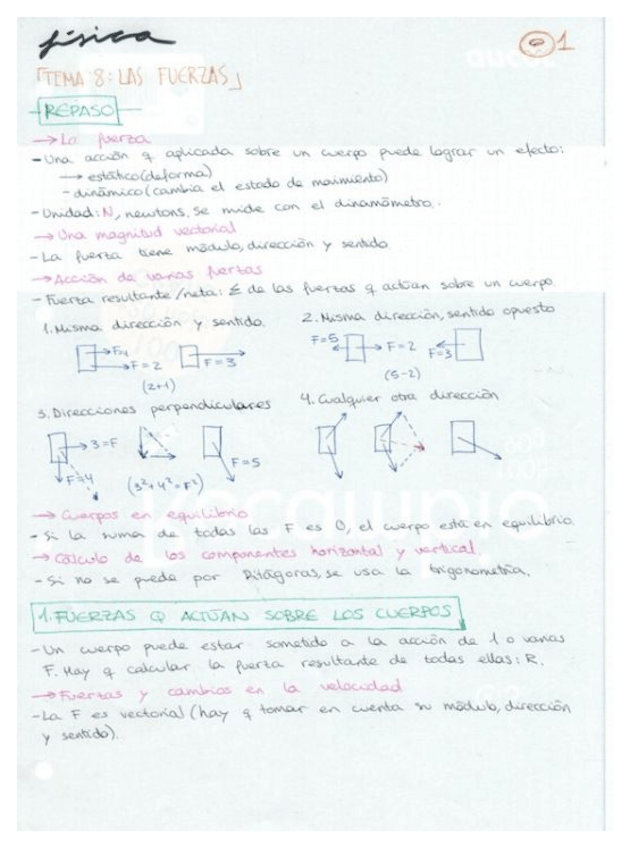 física
1
「TEMA 8: LAS FUERZAS」
REPASO
→ La fuerza
- Una acción q aplicada sobre un cuerpo puede lograr un efecto:
→ estático (deforma)
- dinámico (cambia el estado de movimiento)
- Unidad: N, newtons. Se mide con el dinamómetro.
→ Una magnitud vectorial
- La fuerza tiene módulo, dirección y sentido.
→ Acción de varias fuerzas
- Fuerza resultante/neta: Σ de las fuerzas q actúan sobre un cuerpo.
1. Misma dirección y sentido. 2. Misma dirección, sentido opuesto
F=1 F=2 F=3 F=5 F=2 F=3
(2+1) (5-2)
3. Direcciones perpendiculares 4. Cualquier otra dirección
3=F
F=4 F=5
(3²+4²=F²)
→ Cuerpos en equilibrio
- Si la suma de todas las F es 0, el cuerpo está en equilibrio.
→ Cálculo de los componentes horizontal y vertical.
- Si no se puede por Pitágoras, se usa la trigonometría.
1. FUERZAS Q ACTÚAN SOBRE LOS CUERPOS
- Un cuerpo puede estar sometido a la acción de 1 o varias
F. Hay q calcular la fuerza resultante de todas ellas: R.
→ Fuerzas y cambios en la velocidad
- La F es vectorial (hay q tomar en cuenta su módulo, dirección
y sentido).